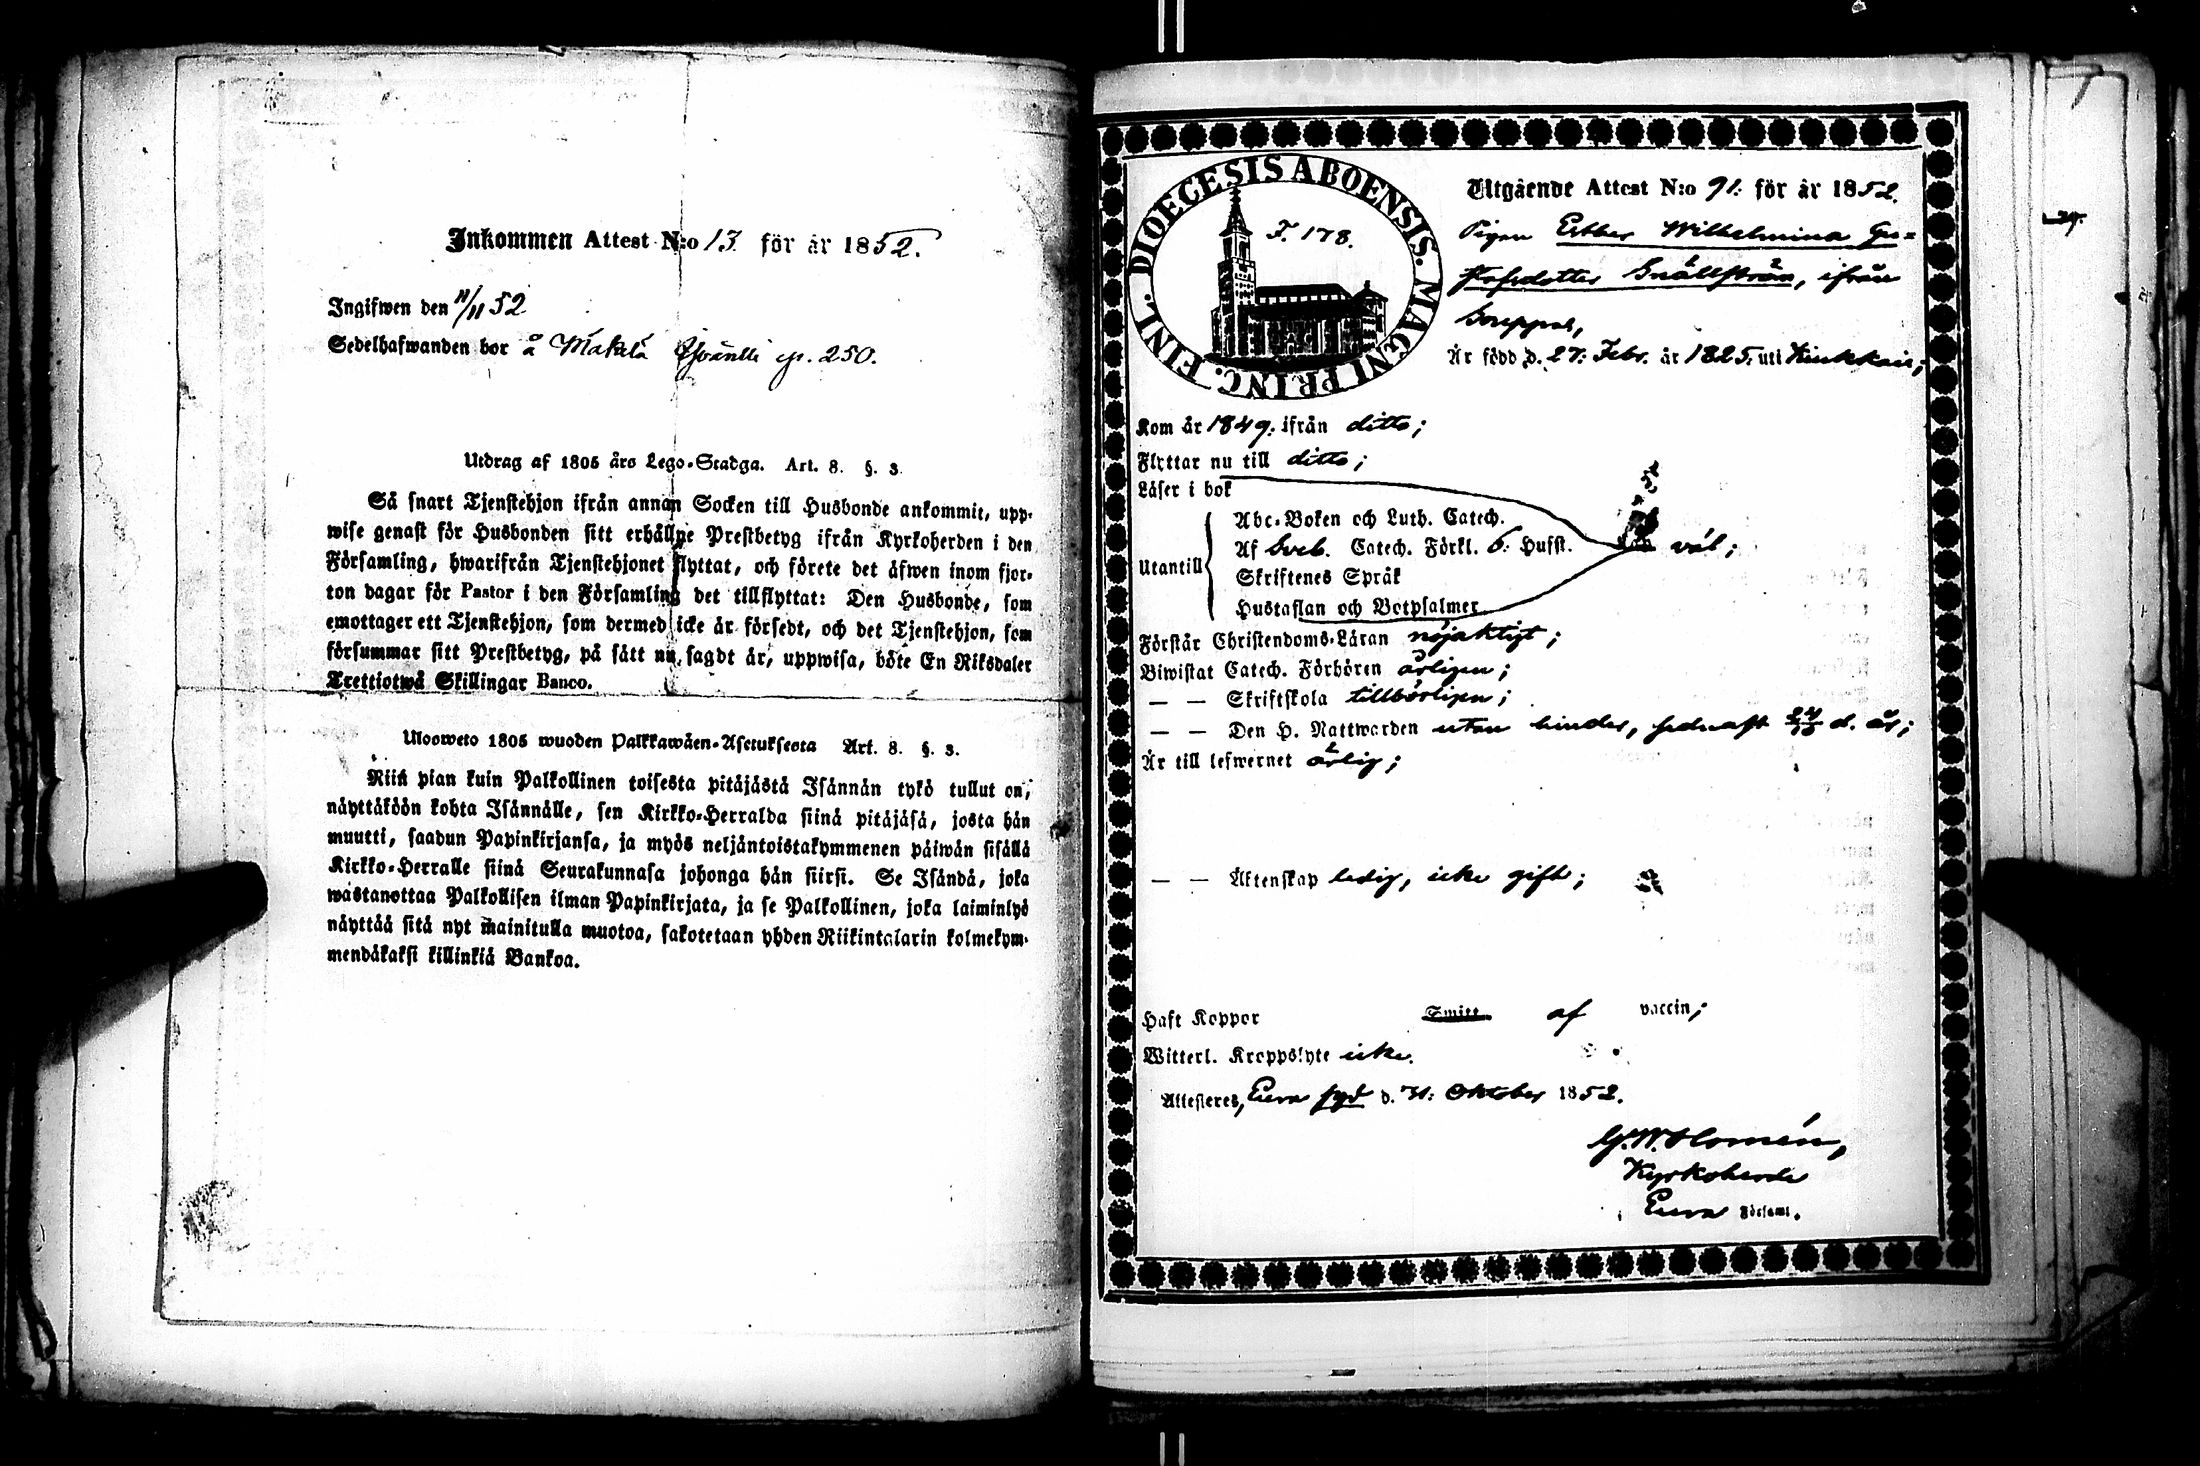 Inkommen Attest N:o 13. för år 1852.
Ingifwen den 11/11 52
Sedelhafwanden bor å Mäkelä
250.
Utdrag af 1805 års Lego-Stadga. Art. 8. §. 3.
Så snart Tjenstehjon ifrån annan Socken till Husbonde ankommit, upp-
wise genast för Husbonden sitt erhållne Prestbetyg ifrån Kyrkoherden i den
Församling, hwarifrån Tjenstehjonet flyttat, och förete det äfwen inom fjor-
ton dagar för Pastor i den Församling det tillflyttat: Den Husbonde, som
emottager ett Tjenstehjon, som dermed icke är försedt, och det Tjenstehjon, som
försummar sitt Prestbetyg, på sätt nu sagdt är, uppwisa, böte En Riksdaler
Trettiotwå Skillingar Banco.
Uloswеto 1805 wuoden Palkkawäen-Asetuksesta Art. 8. §. 3.
Niin pian kuin Palkollinen toisesta pitäjästä Isännän tykö tullut on,
näyttäköön kohta Isännälle, sen Kirkko-Herralda siinä pitäjäsä, josta hän
muutti, saadun Papinkirjansa, ja myös neljäntoistakymmenen päiwän sisällä
Kirkko-Herralle siinä Seurakunnasa johonga hän siirsi. Se Isändä, joka
wastanottaa Palkollisen ilman Papinkirjata, ja se Palkollinen, joka laiminlyö
näyttää sitä nyt mainitulla muotoa, sakotetaan yhden Riikintalarin kolmekym-
mendäkaksi killinkiä Bankoa.
DIOECESIS ABOENSIS. MAGNI PRINC. FINL.
F. 178.
Utgående Attest N:o 91. för år 1852.
Pigan Esther Wilhelmina Gu=
stafsdotter Snällström, ifrån
Souppas,
Är född d. 27. Febr. år 1825. uti Kiukkais;
Kom år 1849. ifrån ditto;
Flyttar nu till ditto;
Läser i bok
Utantill
Abc-Boken och Luth. Catech.
Af Sveb. Catech. Förkl. 6. Husst. väl;
Skriftenes Språk
Hustaflan och Botpsalmer
Förstår Christendoms-Läran nöjaktigt;
Biwistat Catech. Förhören årligen;
— — Skriftskola tillbörligen;
— — Den H. Nattwarden utan hinder, sednast 24/10 d. år;
Är till lefwernet ärlig;
— — Äktenskap ledig, icke gift;
Haft Koppor Smitt af vaccin;
Witterl. Kroppslyte icke.
Attesteres, Eura pgd d. 31. Oktober 1852.
G.W. Homén,
Kyrkoherde
Eura Församl.